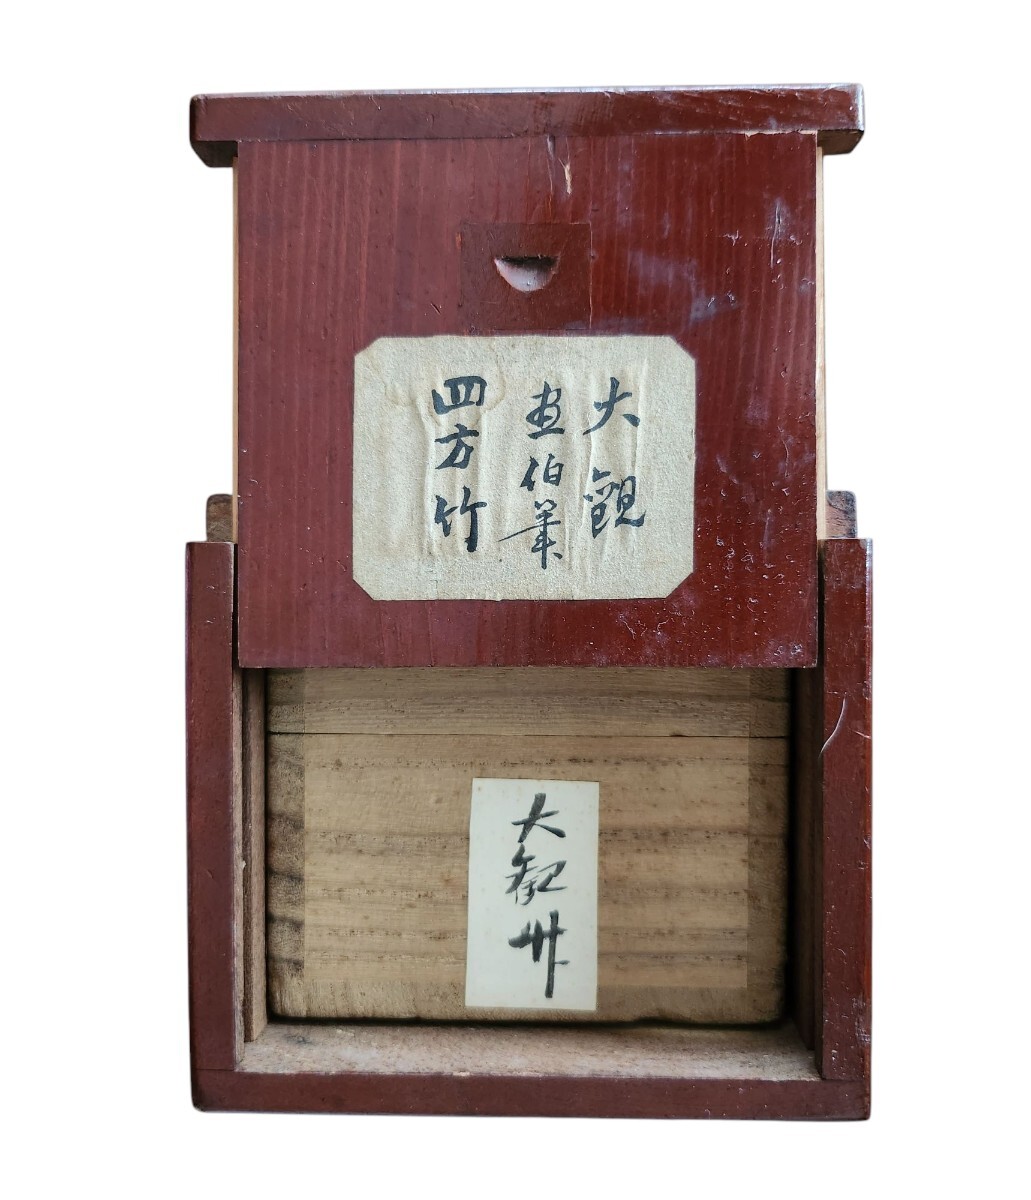 大觀
画伯筆
四方竹
大観